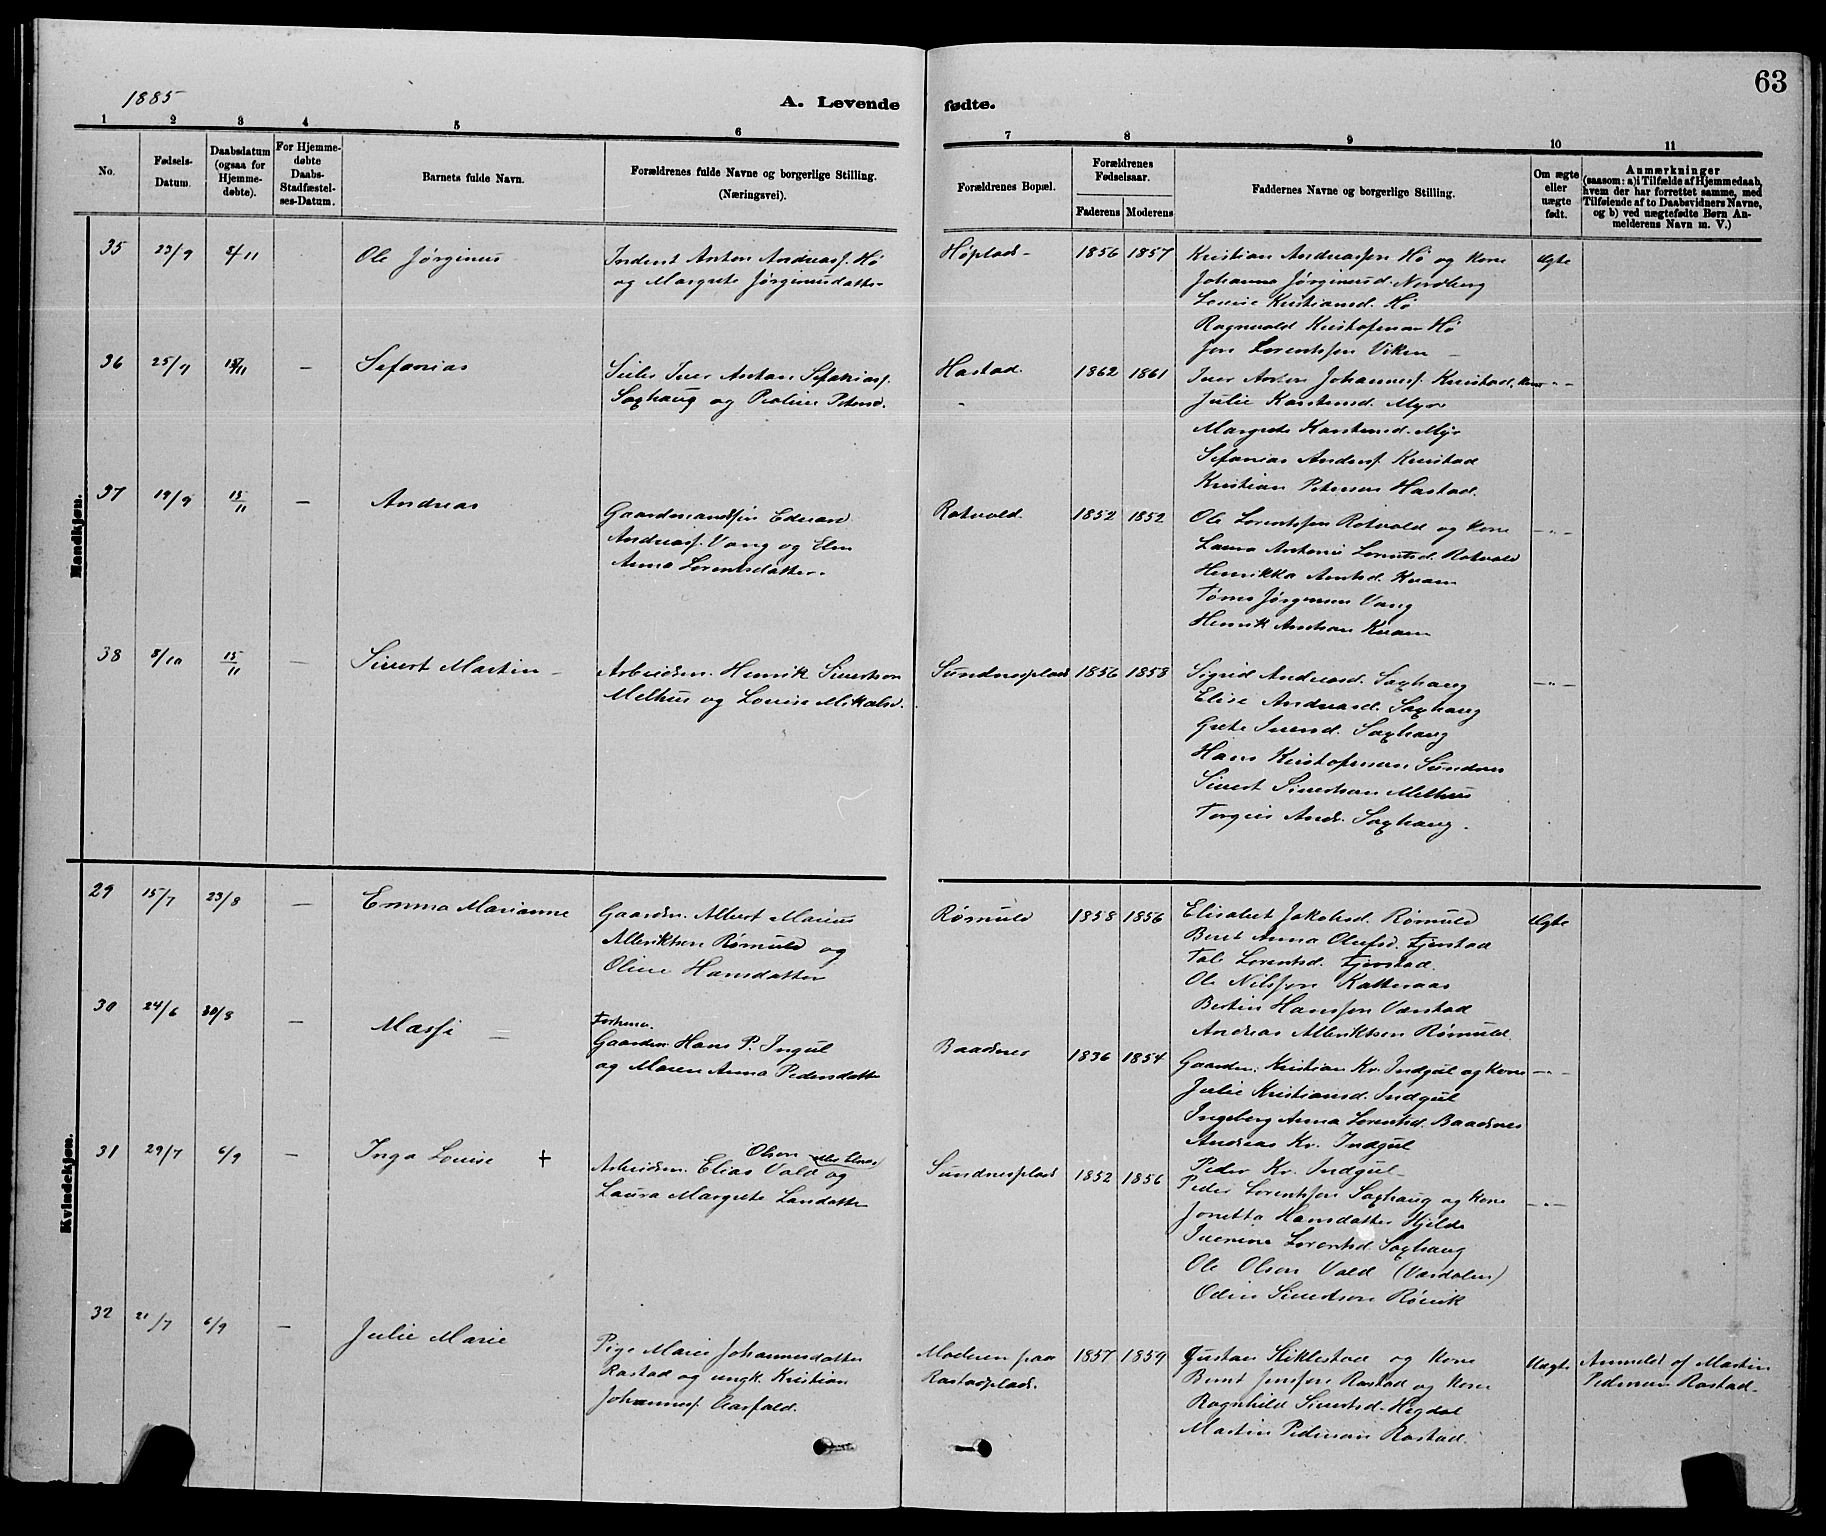 63
1885
A. Levende fødte.
1 2 3 4 5 6 7 8 9 10 11
No.
Fødsels-
Datum.
Daabsdatum
(ogsaa for
Hjemme-
døbte).
For Hjemme-
døbte
Daabs-
Stadfæstel-
ses-Datum.
Barnets fulde Navn.
Forældrenes fulde Navne og borgerlige Stilling.
(Næringsvei).
Forældrenes Bopæl.
Forældrenes
Fødselsaar.
Faderens Moderens
Faddernes Navne og borgerlige Stilling.
Om ægte
eller
uægte
født.
Anmærkninger
(saasom: a) i Tilfælde af Hjemmedaab,
hvem der har forrettet samme, med
Tilføiende af to Daabsvidners Navne,
og b) ved uægtefødte Børn An-
melderens Navn m. V.)
Mandkjøn.
35 23/9 8/11 Ole Jørginus
Inderst Anton Andreass. Hø
og Margrete Jørginusdatter
Høplads 1856 1857
Kristian Andreassen Hø og Kone
Johanna Jørginusd. Nordberg
Louise Kristiansd. Hø
Ragnvald Kristofersen Hø
Jon Lorentssen Viken
Ægte
36 25/9 15/11 – Sefanias
Iver Anton Sefaniass.
Saxhaug og Peters.
Hastad 1862 1861
Iver Anton Johanness. Kunstad, Kone
Julie Karstensd. Myr
Margrete Karstensd. Myr
Sefanias Anders. Kunstad
Kristian Petersen Hastad.
–"–
37 19/9 15/11 – Andreas
Gaardmandssøn Edvard
Andreass. Vang og
Anna Lorentsdatter.
Rotvold. 1852 1852
Ole Lorentssen Rotvold og Kone
Laura Antonie Lorentsd. Rotvold
Henrikka Arntsd. Kvam
Tønes Jørgensen Vang
Henrik Arntsen Kvam
–"–
38 8/10 15/11 – Sivert Martin
Arbeidsm. Henrik Sivertsen
Melhus og Louise Mikalsd.
Sundnesplads 1856 1858
Sigrid Andreasd. Saxhaug
Elise Andreasd. Saxhaug
Grete Iversd. Saxhaug
Hans Kristofersen Sundnes
Sivert Sivertsen Melhus
Torgeis Andr. Saxhaug.
–"–
Kvindekjøn.
29 15/7 23/8 – Emma Marianne
Gaardm. Albert Marius
Albriktsen Rømuld og
Oline Hansdatter
Rømuld 1858 1856
Elisabet Jakobsd. Rømuld
Beret Anna Olufsd. Tjerstad
Tale Lorentsd. Tjerstad.
Ole Nilssen Katteraas
Bertin Hanssen Værstad
Andreas Albriktsen Rømuld
Ægte
30 24/6 30/8 – Massi
Gaardm. Hans P. Ingul
og Maren Anna Pedersdatter
Baadsnes 1836 1854
Gaardm. Kristian Kr. Indgul og Kone
Julie Kristiansd. Indgul
Ingeborg Anna Lorentsd. Baadsnes
Andreas Kr. Indgul
Peder Kr. Indgul
–"–
31 29/7 6/9 – Inga Louise +
Olsen
Arbeidsm. Elias Vald og
Laura Margrete Larsdatter
Sundnesplads 1852 1856
Peder Lorentssen Saxhaug og Kone
Jonetta Hansdatter Hjelde
Iverine Lorentsd. Saxhaug
Ole Olsen Vald (Værdalen)
Odin Sivertsen Rønvik
–"–
32 21/7 6/9 – Julie Marie
Pige Marie Johannesdatter
Rostad og ungk. Kristian
Johanness. Aasfald.
Moderen paa
Rostadplads.
1857 1859
Gustav Stiklestad og Kone
Bernt Jenssen Rostad og Kone
Ragnhild Sivertsd. Hegdal
Martin Pedersen Rostad.
Uægte
Anmeldt af Martin
Pedersen Rostad.